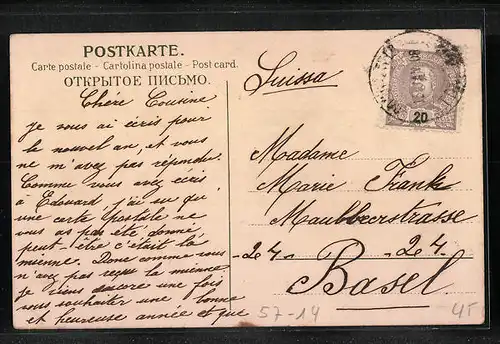 POSTKARTE.
Carte postale – Cartolina postale – Post card.
ОТКРЫТОЕ ПИСЬМО.
Chére Cousine
je vous ai écris pour
le nouvel an, et vous
ne m'avez pas répondu.
Comme vous avez écris
à Edouard, j'ai su qu'
une carte postale ne
vous as pas été donné,
peut-être c'était la
mienne. Donc comme vous
n'avez pas reçu la mienne
je viens encore une fois
vous souhaiter une bonne
et heureuse année et que
Suissa
Madame
Marie Frank
Maulbeerstrasse
-24- -24-
Basel
20
57-14
45